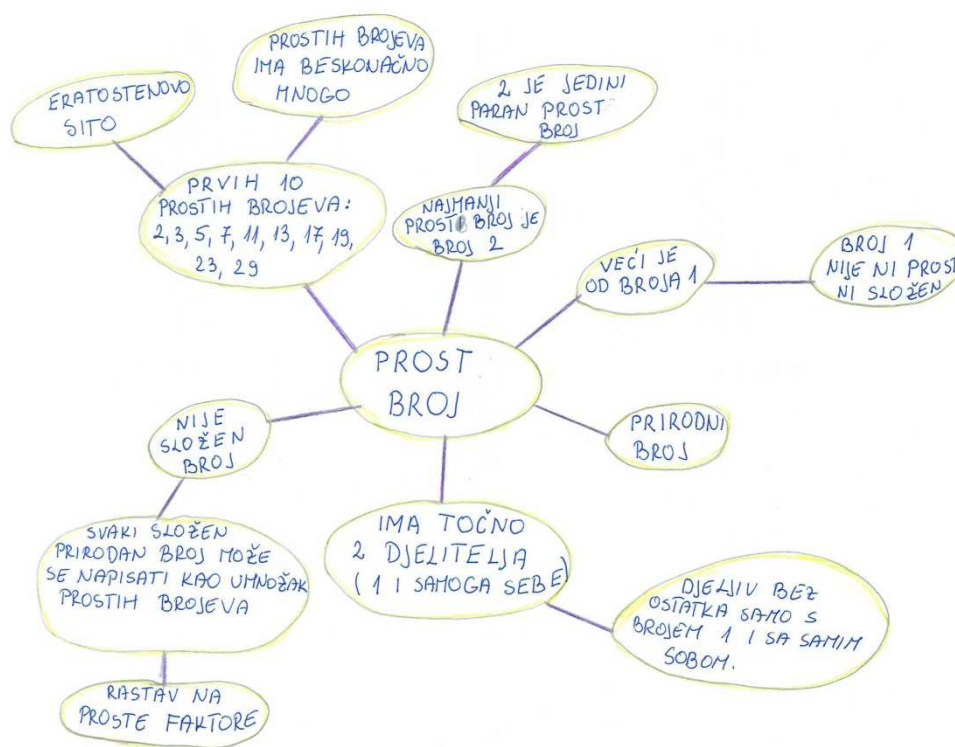 ERATOSTENOVO
SITO
PROSTIH BROJEVA
IMA BESKONAČNO
MNOGO
2 JE JEDINI
PARAN PROST
BROJ
PRVIH 10
PROSTIH BROJEVA:
2, 3, 5, 7, 11, 13, 17, 19,
23, 29
NAJMANJI
PROST BROJ JE
BROJ 2
VEĆI JE
OD BROJA 1
BROJ 1
NIJE NI PROST
NI SLOŽEN
PROST
BROJ
NIJE
SLOŽEN
BROJ
PRIRODNI
BROJ
SVAKI SLOŽEN
PRIRODAN BROJ MOŽE
SE NAPISATI KAO UMNOŽAK
PROSTIH BROJEVA
IMA TOČNO
2 DJELITELJA
(1 I SAMOGA SEBE)
DJELJIV BEZ
OSTATKA SAMO S
BROJEM 1 I SA SAMIM
SOBOM.
RASTAV NA
PROSTE FAKTORE